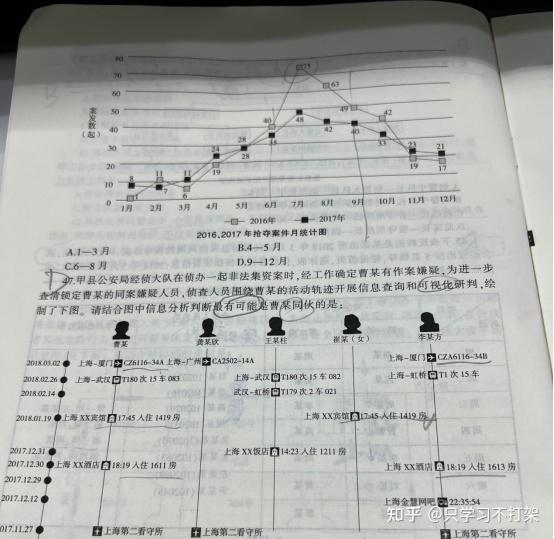 80
70
60
50
40
30
20
10
0
案发数(起)
75
63
49
42
40
48
42
40
35
33
28
28
24
19
23
21
19
17
11
11
8
7
6
1
1月 2月 3月 4月 5月 6月 7月 8月 9月 10月 11月 12月
2016年 2017年
2016,2017年抢夺案件月统计图
A.1—3月 B.4—5月
C.6—8月 D.9—12月
47.甲县公安局经侦大队在侦办一起非法集资案时,经工作确定曹某有作案嫌疑,为进一步
查清锁定曹某的同案嫌疑人员,侦查人员围绕曹某的活动轨迹开展信息查询和可视化研判,绘
制了下图。请结合图中信息分析判断最有可能是曹某同伙的是:
曹某 龚某欣 王某柱 崔某(女) 李某方
2018.03.02 上海-厦门 CZ6116-34A 上海-广州 CA2502-14A 上海-厦门 CZA6116-34B
2018.02.26 上海-武汉 T180次15车083 上海-武汉 T180次15车082 上海-虹桥 T1次15车
2018.02.14 武汉-虹桥 T179次2车021
2018.01.19 上海XX宾馆 17:45入住1419房 上海XX宾馆 17:45入住1419房
2017.12.31 上海XX饭店 14:23入住1211房
2017.12.30 上海XX酒店 18:19入住1611房 上海XX酒店 18:19入住1613房
2017.12.29
2017.12.12 上海金慧网吧 22:35:54
2017.11.27 上海第二看守所 上海第二看守所 上海第二看守所
知乎 @只学习不打架